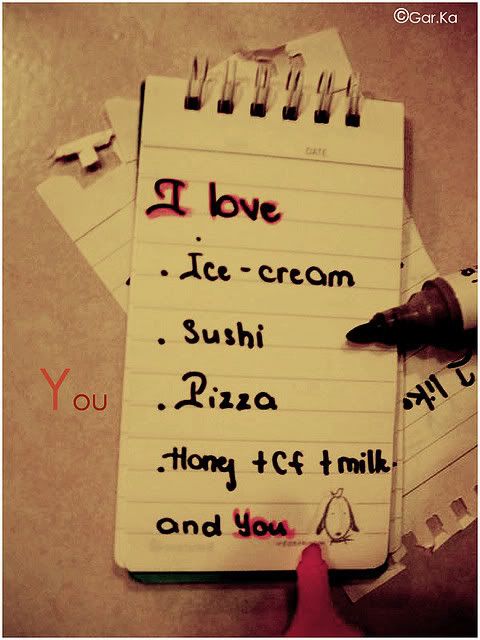 ©Gar.Ka
DATE
I love
. Ice-cream
. Sushi
. Pizza
. Honey + Cf + milk.
and You
You
I like